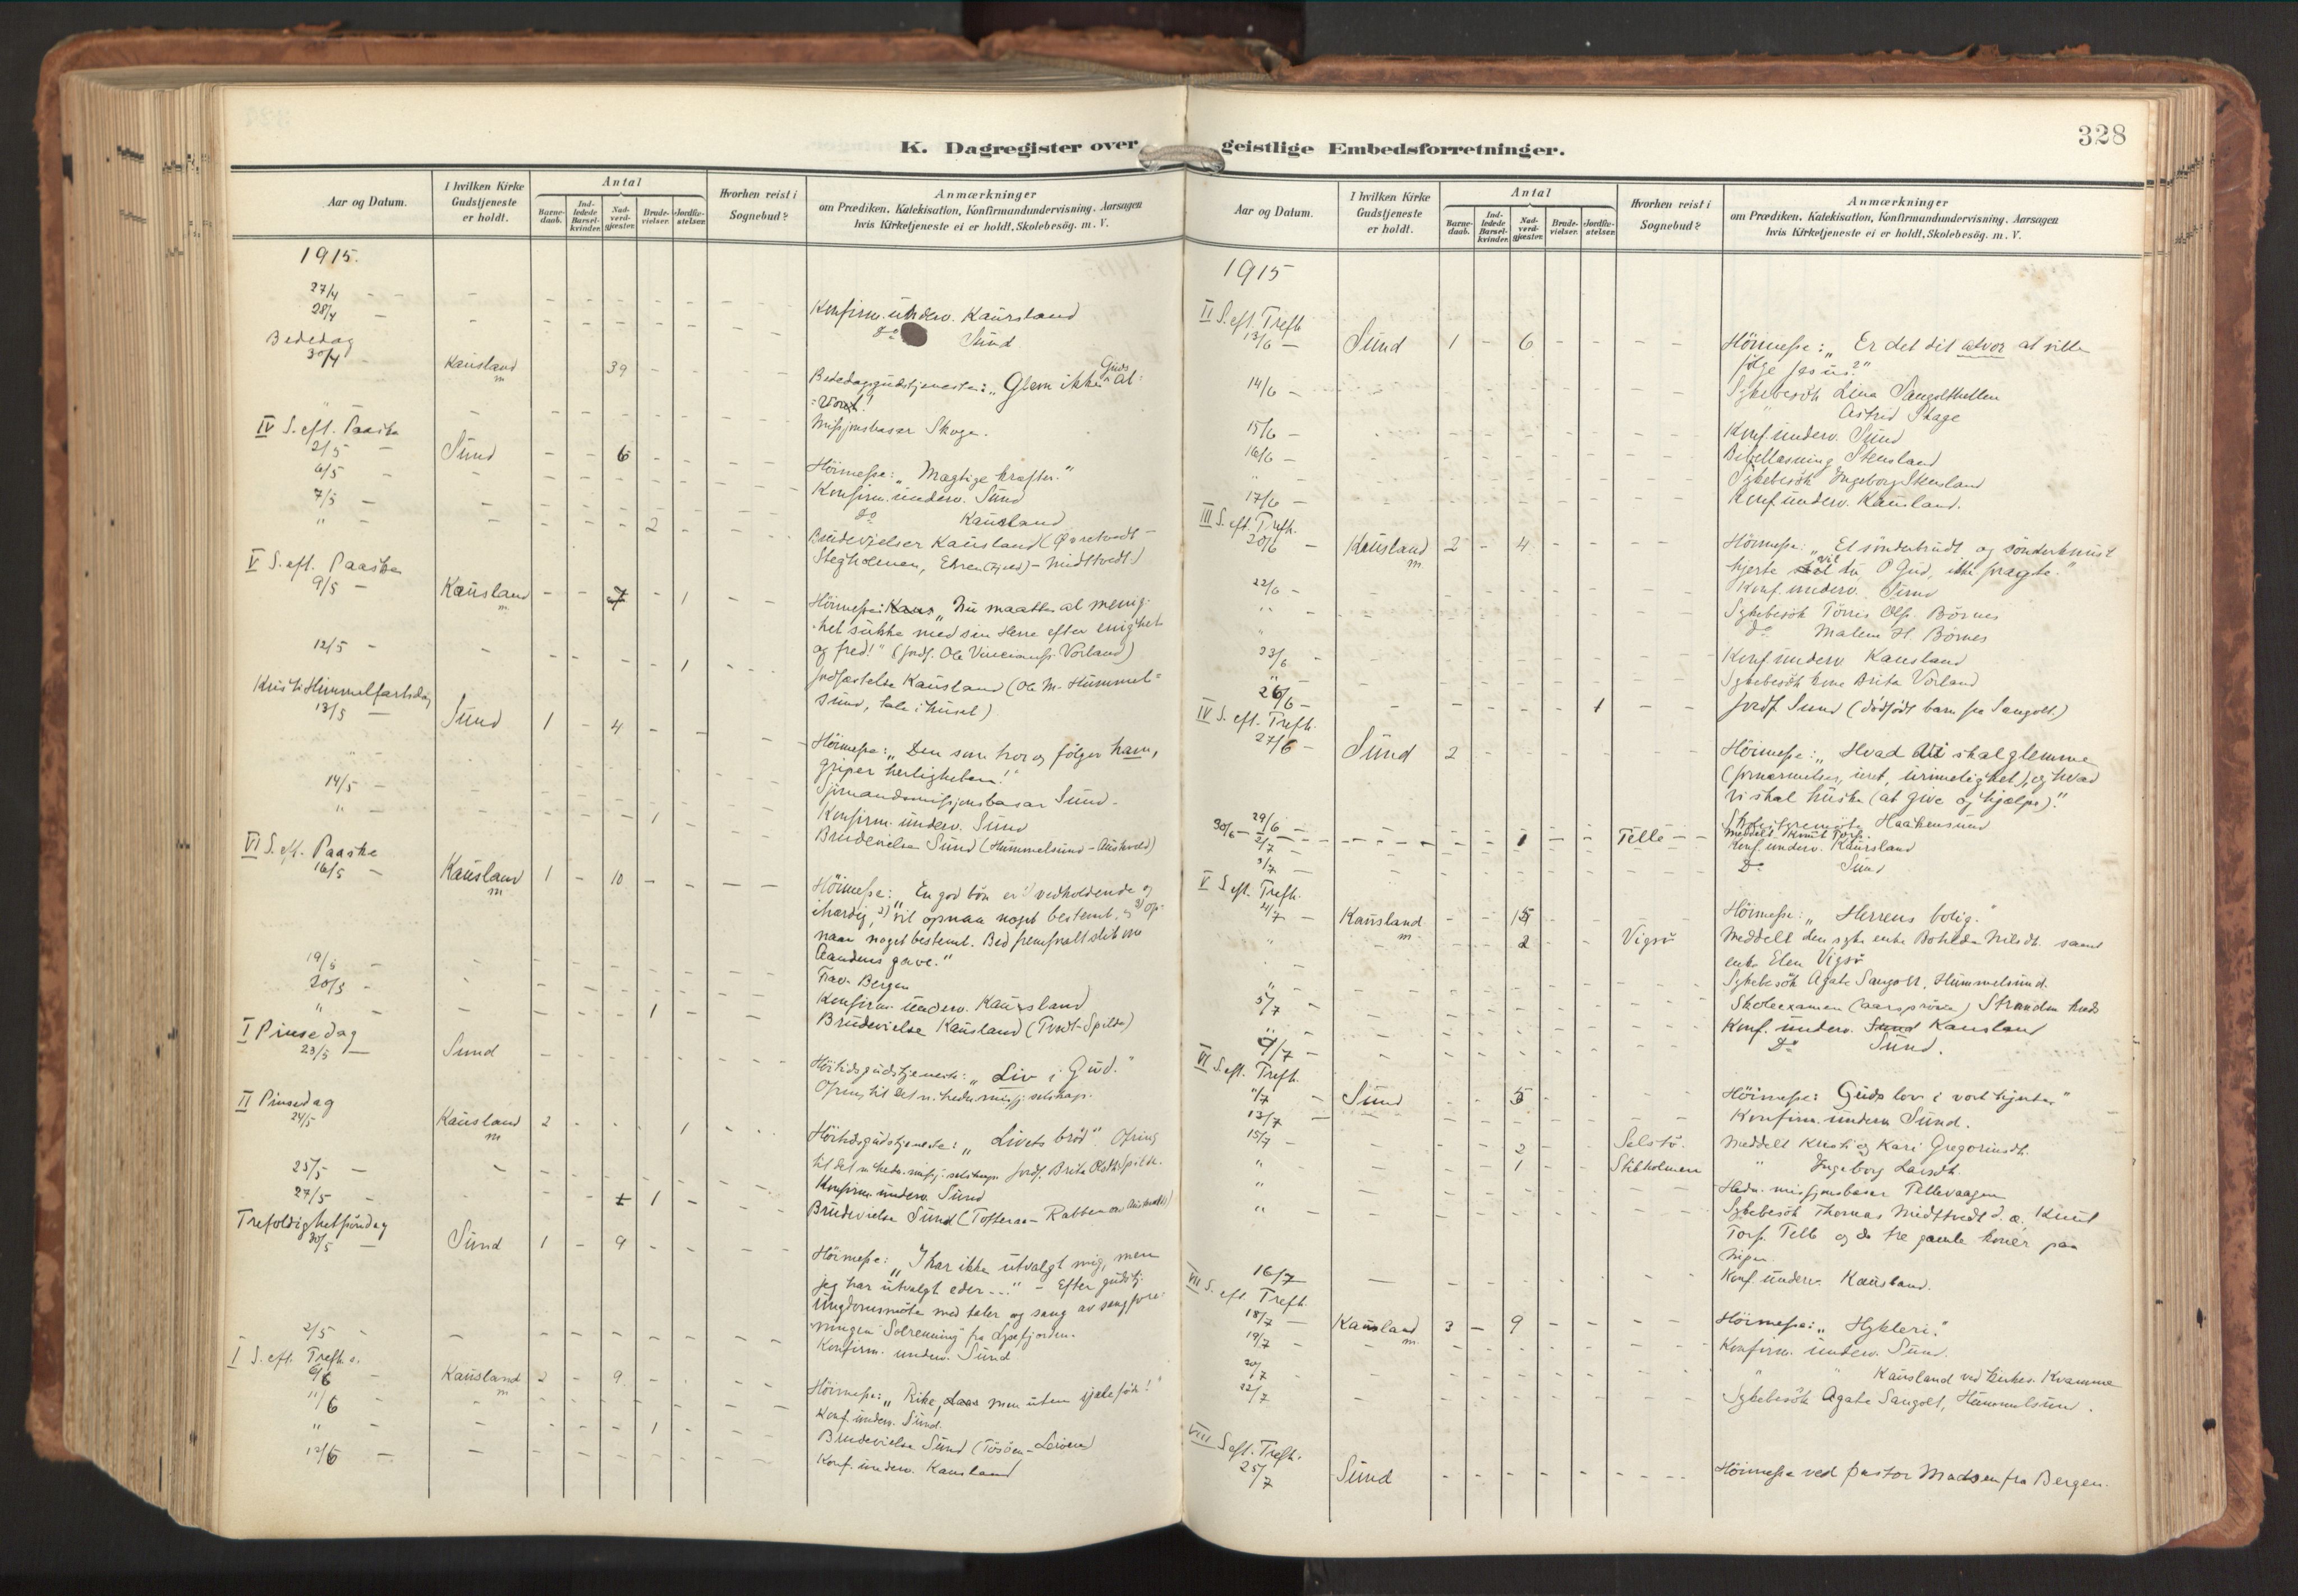 K. Dagregister over geistlige Embedsforretninger.
328
Aar og Datum.
I hvilken Kirke Gudstjeneste er holdt.
Antal
Barne-daab.
Ind-ledede Barsel-kvinder.
Nad-verd-gjester.
Brude-vielser.
Jordfæ-stelser.
Hvorhen reist i Sognebud?
Anmærkninger
om Prædiken, Katekisation, Konfirmandundervisning, Aarsagen
hvis Kirketjeneste ei er holdt, Skolebesøg. m. V.
1915.
27/4 Konfirm. underv. Kausland
28/4 do Sund
Bededag
30/4 Kausland m 39 Bededagsgudstjeneste: „Glem ikke Guds al-
Missjonsbasar Skoge.
IV S. eft. Paaske
2/5 Sund 6 Höimesse: „Mægtige kræfter."
6/5 Konfirm. underv. Sund
7/5 do Kausland
" 2 Brudevielser Kausland
V S. eft. Paaske
9/5 Kausland m 7 1 Höimesse: „Nu maatte al menig-
het sukke med sin Herre efter enighet
og fred!" (jordf. Ole Vorland)
12/5 1 Jordfæstelse Kausland (Ole M. Hummel-
sund, tale i huset)
Kristi Himmelfartsdag
13/5 Sund 1 - 4 Höimesse: „Den som tror og følger ham,
griper herligheten!"
" Sjømandsmissjonsbasar Sund.
14/5 Konfirm. underv. Sund
" 1 Brudevielse Sund (Hummelsund - Austevold)
VI S. eft. Paaske
16/5 Kausland m 1 - 10 Höimesse: „En god bön er 1) vedholdende og
ihærdig, 2) vil opnaa noget bestemt, 3) op-
naar noget bestemt. Bed
Aandens gave."
19/5 Frav. Bergen
20/5 Konfirm. underv. Kausland
" 1 Brudevielse Kausland (Tveit-Spilde)
I Pinsedag
23/5 Sund Höitidsgudstjeneste: „Liv i Gud."
Ofring til det n. hedn. missj. selskap.
II Pinsedag
24/5 Kausland m 2 1 Höitidsgudstjeneste: „Livets bröd". Ofring
til det n. hedn. missj. selskap. Jordf. Brita Olsdtr. Spilde.
25/5 Konfirm. underv. Sund
27/5 1 Brudevielse Sund
Trefoldighetssöndag
30/5 Sund 1 - 9 Höimesse: „I har ikke utvalgt mig, men
jeg har utvalgt eder ..." - Efter gudstj.
Ungdomsmöte med taler og sang av sangfore-
ningen "Solrenning" fra Lysefjorden.
2/5 Konfirm. underv. Sund
I S. eft. Trefh.
6/6 Kausland m 2 - 9 Höimesse: „Rike, men uten sjælefök!"
11/6 Konf. underv. Sund.
" 1 Brudevielse Sund
12/6 Konf. underv. Kausland
1915
II S. eft. Trefh.
13/6 Sund 1 - 6 Höimesse: „Er det dit alvor at ville
følge Jesus?"
14/6 Sykebesök Lina Sangolthellen
" Astrid Skage
15/6 Konf. underv. Sund
16/6 Bibellæsning Stensland
" Sykebesök Ingeborg Stensland
17/6 Konf. underv. Kausland.
III S. eft. Trefh.
20/6 Kausland m 2 - 4 Höimesse: „Et sönderbrudt og sönderknust
hjerte vil du, O Gud, ikke foragte."
22/6 Konf. underv. Sund
" Sykebesök Törris Ols. Börnes
" do Malene H. Börnes
23/6 Konf. underv. Kausland
" Sykebesök Brita Vorland
26/6 1 Jordf. Sund (dödfödt barn fra Sangolt.)
IV S. eft. Trefh.
27/6 Sund 2 Höimesse: „Hvad vi skal glemme
(fornærmelser, uret, urimelighet), og hvad
vi skal huske (at give og hjælpe)."
29/6 Haakensund
30/6 1 Telle Meddelt Knut Tors.
2/7 Konf. underv. Kausland
3/7 Do Sund
V S. eft. Trefh.
4/7 Kausland m 15 Höimesse: „Herrens bolig."
" 2 Vigsö Meddelt den syke enke Bohilda Nilsdt. samt
enke Elen Vigsö
" Sykebesök Agate Sangolt, Hummelsund.
5/7 Skoleexamen (aarspröve)
" Konf. underv. Kausland
9/7 Do Sund.
VI S. eft. Trefh.
11/7 Sund Höimesse: Guds lov i vort hjerte"
13/7 Konfirm. underv. Sund.
15/7 2 Selstö. Meddelt Kristi og Kari Gregoriusdt.
" 1 Stibholmen " Ingeborg Larsdt.
" Hedn. missjonsbasar Tellevaagen
" Sykebesök Thomas Midttvedt d. æ. Knut
Tors. Telle og de tre gamle koner paa
16/7 Konf. underv. Kausland.
VII S. eft. Trefh.
18/7 Kausland m. 3 - 9 Höimesse: „Hykleri."
19/7 Konfirm. underv. Sund.
20/7 " Kausland ved kirkes. Kvamme
22/7 Sykebesök Agate Sangolt, Hummelsund.
VIII S. eft. Trefh.
25/7 Sund Höimesse ved pastor Madsen fra Bergen.